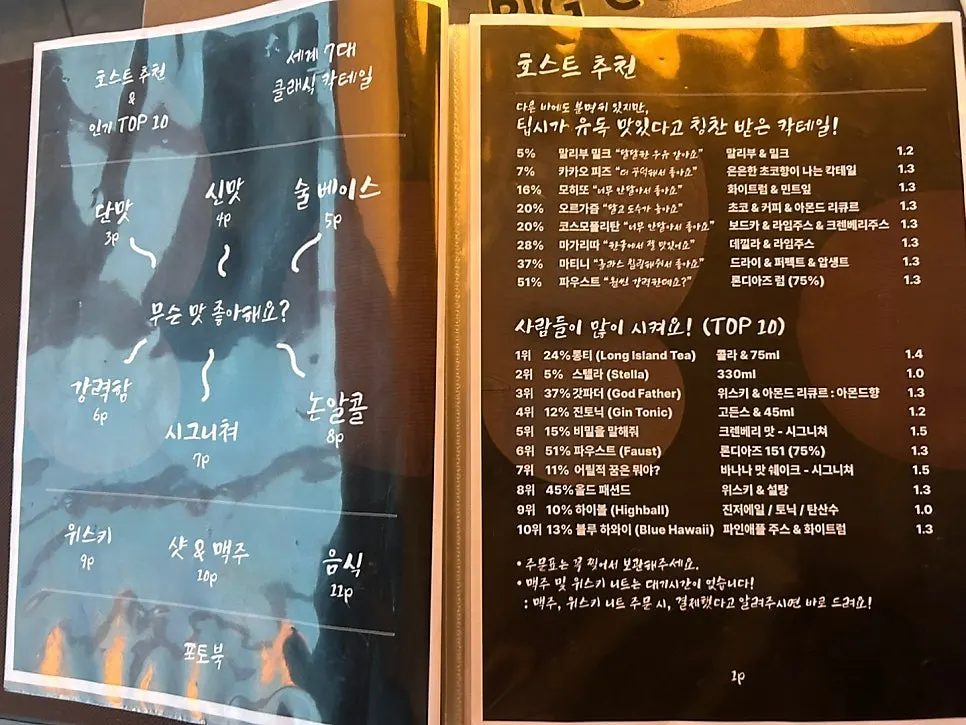 호스트 추천
&
인기 TOP 10
세계 7대
클래식 칵테일
단맛
3p
신맛
4p
술 베이스
5p
무슨 맛 좋아해요?
강력함
6p
시그니쳐
7p
논알콜
8p
위스키
9p
샷 & 맥주
10p
음식
11p
포토북
호스트 추천
다른 바에도 분명히 있지만,
팁시가 유독 맛있다고 칭찬 받은 칵테일!
5% 말리부 밀크 "달달한 우유 같아요" 말리부 & 밀크 1.2
7% 카카오 피즈 "더 꾸덕해서 좋아요" 은은한 초코향이 나는 칵테일 1.3
16% 모히또 "너무 안달아서 좋아요" 화이트럼 & 민트잎 1.3
20% 오르가즘 "달고 도수가 높아요" 초코 & 커피 & 아몬드 리큐르 1.3
20% 코스모폴리탄 "너무 안달아서 좋아요" 보드카 & 라임주스 & 크렌베리주스 1.3
28% 마가리따 "한국에서 젤 맛있어요" 데낄라 & 라임주스 1.3
37% 마티니 "글라스 칠링해줘서 좋아요" 드라이 & 퍼펙트 & 압생트 1.3
51% 파우스트 "훨씬 강력한데요?" 론디아즈 럼 (75%) 1.3
사람들이 많이 시켜요! (TOP 10)
1위 24% 롱티 (Long Island Tea) 콜라 & 75ml 1.4
2위 5% 스텔라 (Stella) 330ml 1.0
3위 37% 갓파더 (God Father) 위스키 & 아몬드 리큐르 : 아몬드향 1.3
4위 12% 진토닉 (Gin Tonic) 고든스 & 45ml 1.2
5위 15% 비밀을 말해줘 크렌베리 맛 - 시그니쳐 1.5
6위 51% 파우스트 (Faust) 론디아즈 151 (75%) 1.3
7위 11% 어릴적 꿈은 뭐야? 바나나 맛 쉐이크 - 시그니쳐 1.5
8위 45% 올드 패션드 위스키 & 설탕 1.3
9위 10% 하이볼 (Highball) 진저에일 / 토닉 / 탄산수 1.0
10위 13% 블루 하와이 (Blue Hawaii) 파인애플 주스 & 화이트럼 1.3
• 주문표는 꼭 찍어서 보관해주세요.
• 맥주 및 위스키 니트는 대기시간이 없습니다!
: 맥주, 위스키 니트 주문 시, 결제했다고 알려주시면 바로 드려요!
1p